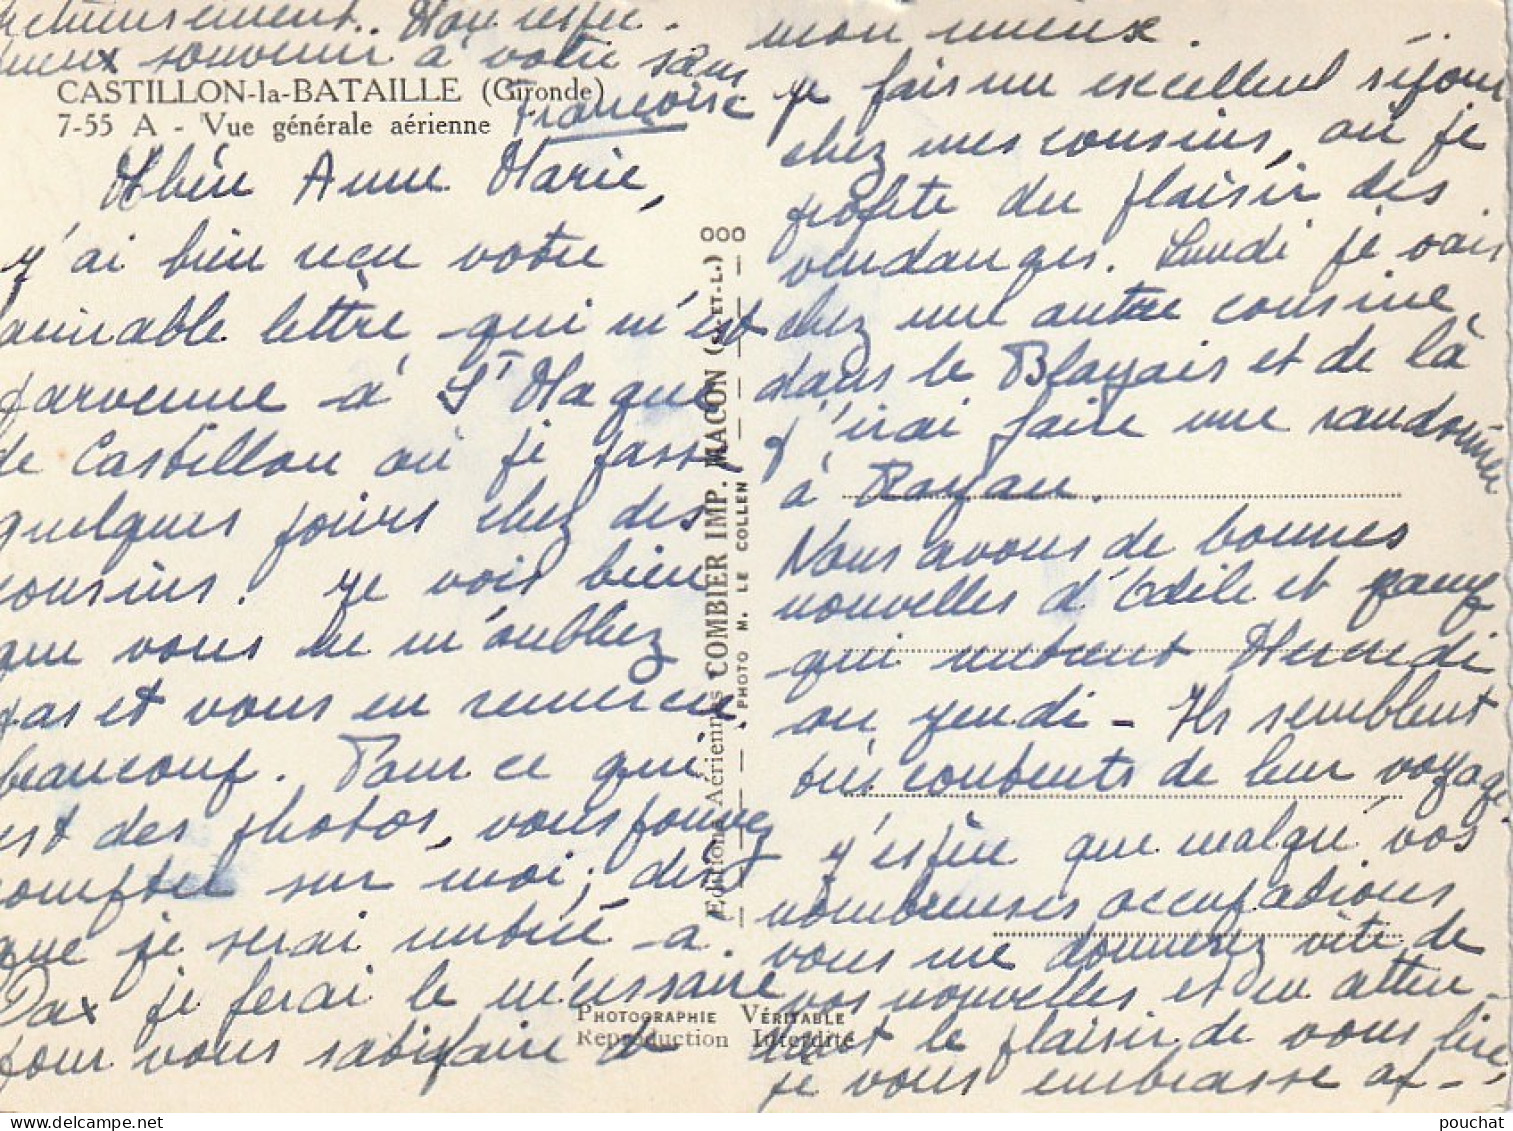 CASTILLON-la-BATAILLE (Gironde)
7-55 A - Vue générale aérienne
Chère Anne Marie,
j'ai bien reçu votre
aimable lettre qui m'est
parvenue à St Magne
de Castillon où je passe
quelques jours chez des
cousins. Je vois bien
que vous ne m'oubliez
pas et vous en remercie
beaucoup. Pour ce qui
est des photos, vous pouvez
compter sur moi ; dès
que je serai rentrée à
Dax je ferai le nécessaire
pour vous satisfaire de
mon mieux.
Je fais un excellent séjour
chez mes cousins, où je
profite du plaisir des
vendanges. Lundi je vais
chez une autre cousine
dans le Blayais et de là
j'irai faire une randonnée
à Royan.
Nous avons de bonnes
nouvelles d'Odile et
qui rentrent Mercredi
ou Jeudi - Ils semblent
très contents de leur voyage.
J'espère que malgré vos
nombreuses occupations
vous me donnerez vite de
vos nouvelles et en atten-
dant le plaisir de vous lire,
je vous embrasse af-
fectueusement. Mon respec-
tueux souvenir à votre
Françoise
Editions Aériennes COMBIER IMP. MACON (S.-ET-L.)
PHOTO M. LE COLLEN
000
PHOTOGRAPHIE VÉRITABLE
Reproduction Interdite
pouchat